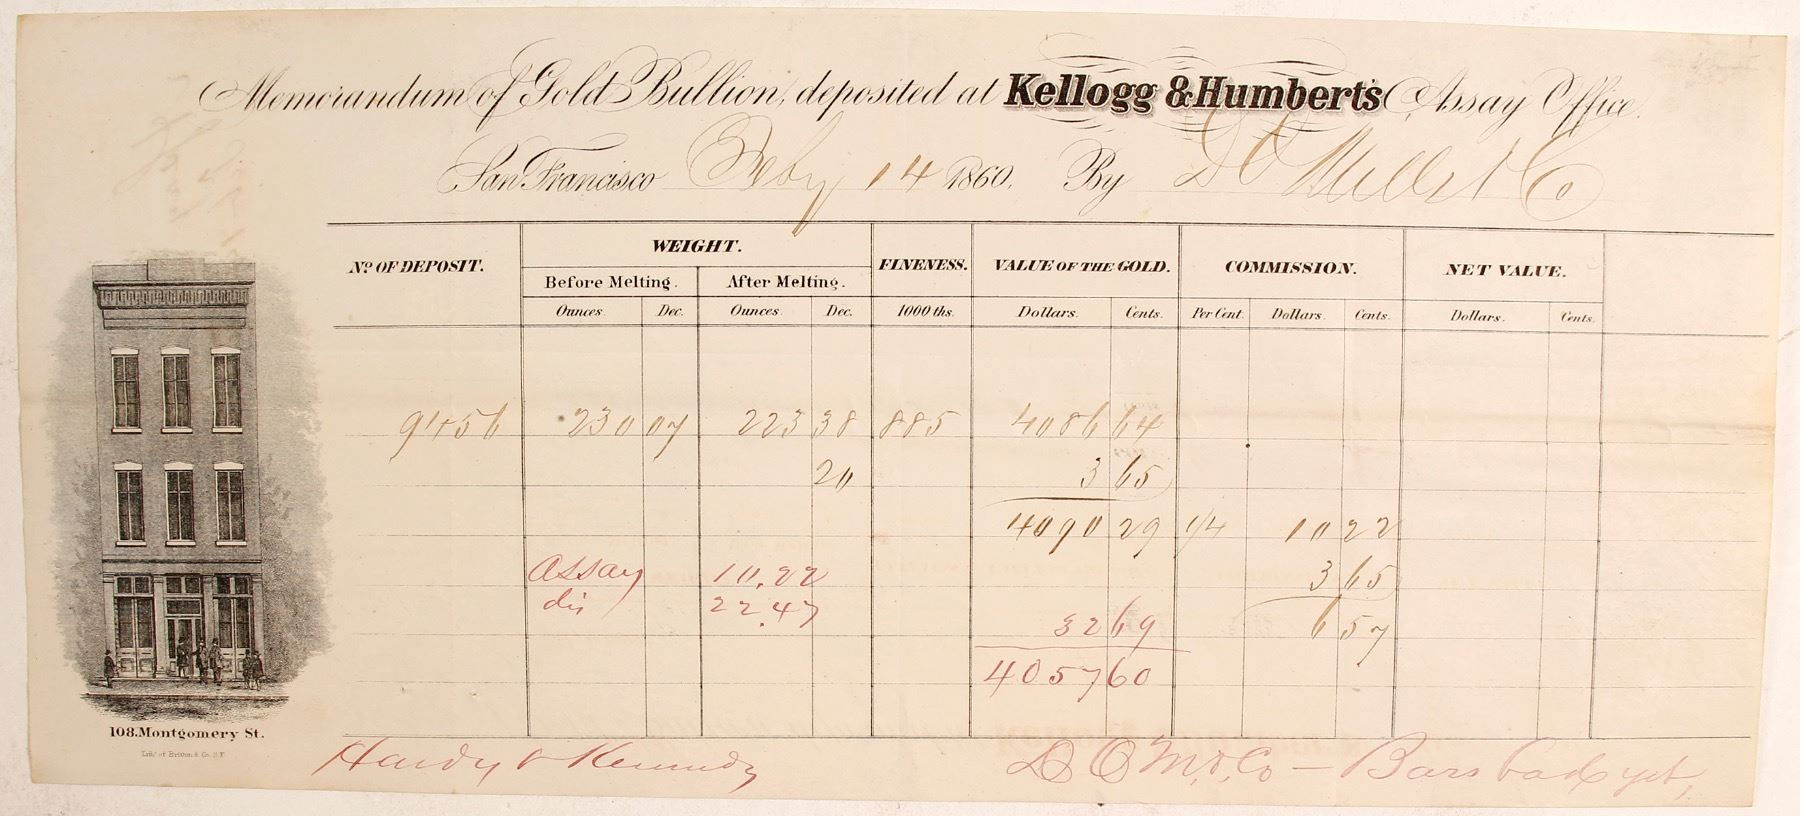 Memorandum of Gold Bullion, deposited at Kellogg & Humbert's Assay Office.
San Francisco Feby 14 1860, By D O Mills & Co
Nº OF DEPOSIT. WEIGHT. FINENESS. VALUE OF THE GOLD. COMMISSION. NET VALUE.
Before Melting. After Melting.
Ounces. Dec. Ounces. Dec. 1000 ths. Dollars. Cents. Per Cent. Dollars. Cents. Dollars. Cents.
9456 230 07 223 38 885 4086 64
20 3 65
4090 29 1/4 10 22
Assay 10.22 3 65
dis 22.47 32 69 6 57
4057 60
108. Montgomery St.
Lith. of Britton & Co. S.F.
Hardy & Kennedy D O M & Co — Bars back yet,